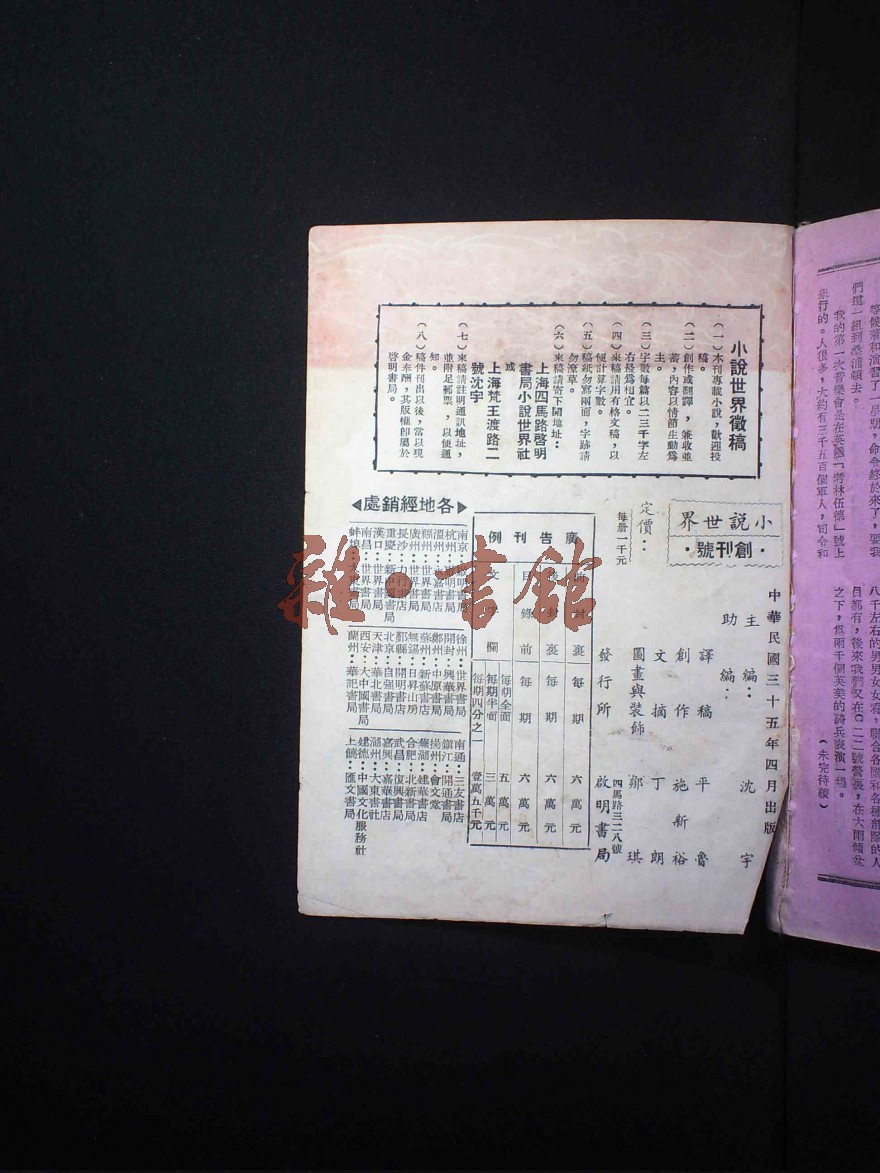 小說世界徵稿
（一）本刊專載小說，歡迎投
稿。
（二）創作或翻譯，兼收並
蓄，內容以情節生動爲
主。
（三）字數每篇以二三千字左
右最爲相宜。
（四）來稿請用有格文稿，以
便計算字數。
（五）稿紙勿寫兩面，字跡請
勿潦草。
（六）來稿請寄下開地址：
上海四馬路啓明
書局小說世界社
或
上海梵王渡路二
號沈宇
（七）來稿請註明通訊地址，
並附足郵票，以便通
知。
（八）稿件刊出以後，當以現
金奉酬，其版權即屬於
啓明書局。
小說世界
·創刊號·
定價：
每册一千元
中華民國三十五年四月出版
主編：沈宇
助編：
譯稿 平魯
創作 施新裕
文摘 丁朗
圖畫與裝飾 鄔琪
發行所 啟明書局
四馬路三二八號
廣告刊例
封裏 每期 六萬元
封裏 每期 六萬元
目錄前 每期 六萬元
文 欄
每期全面 五萬元
每期半面 三萬元
每期四分之一 壹萬五千元
各地經銷處
南京：明書局
杭州：明書局
溫州：嘉書店
福州：世界書局
廣州：世界書局
長沙：力行書店
重慶：新中國書局
漢口：世界書局
南昌：世界書局
蚌埠：書局
徐州：世界書局
開封：興華書局
鄭州：中原書局
蘇州：新蘇書店
無錫：日昇山房
鄞縣：開明書店
北京：自強書局
天津：華北書局
西安：大中國書局
蘭州：華記書局
南通：三友書店
鎮江：開通書局
揚州：會文堂
蕪湖：建華書局
合肥：北新書局
武昌：復興書局
嘉興：嘉華書店
湖州：大東書社
建德：中國文化服務社
上饒：匯文書局
雜·書館
等候着和演習了一星期，命令終於來了，要我
們這一組到桑浦頓去。
我的第一次音樂會是在英艦「考林伍德」號上
舉行的。人很多，大約有三千五百個軍人，司令和
八千左右的男男女女看，聯合各國和各種部隊的人
員都有，後來我們又在C二二號營裏，在大雨傾盆
之下，爲兩千個英美的騎兵表演一場。
（未完待續）